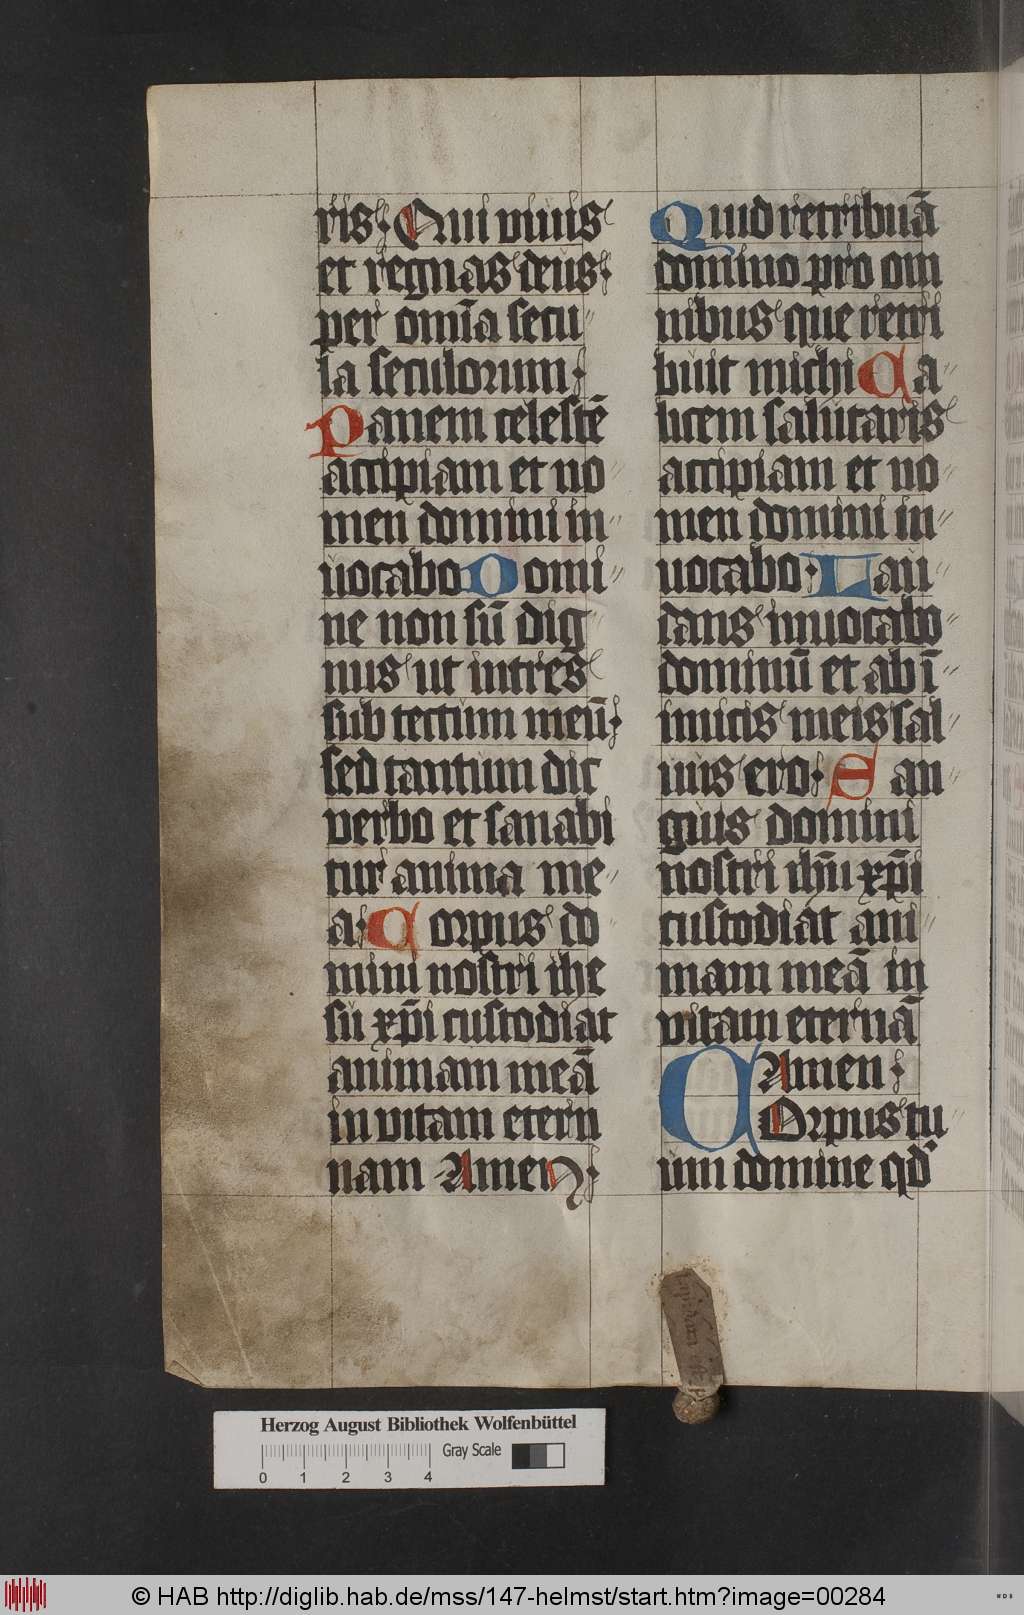 ris. Qui viuis
et regnas deus.
per om̄ia secu
la seculorum.
Panem celestē
accipiam et no
men domini in
uocabo Domi
ne non sū dig
nus ut intres
sub tectum meū.
sed tantum dic
verbo et sanabi
tur anima me
a. Corpus do
mini nostri ihe
su xp̄i custodiat
animam meā
in vitam eter
nam Amen.
Quid retribuā
domino pro om
nibus que retri
buit michi Ca
licem salutaris
accipiam et no
men domini in
uocabo. Lau
dans inuocabo
dominū et ab ī
imicis meis sal
uus ero. San
guis domini
nostri ihū xp̄i
custodiat ani
mam meā in
vitam eternā
Amen.
Corpus tu
um domine qd
Herzog August Bibliothek Wolfenbüttel
0 1 2 3 4 Gray Scale
© HAB http://diglib.hab.de/mss/147-helmst/start.htm?image=00284